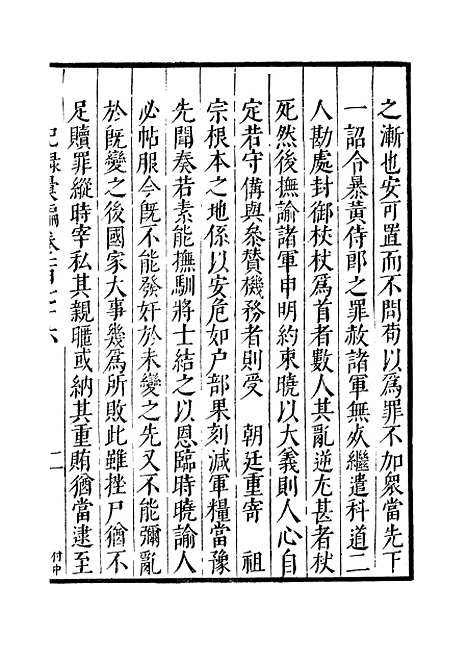 之漸也安可置而不問苟以爲罪不加衆當先下
一詔令暴黃侍郎之罪赦諸軍無㳄繼遣科道二
人勘處封御杖杖爲首者數人其亂逆尤甚者杖
死然後撫諭諸軍申明約束曉以大義則人心自
定若守備與叅賛機務者則受　朝廷重寄　祖
宗根本之地係以安危如户部果刻減軍糧當豫
先聞奏若素能撫馴將士結之以恩臨時曉諭人
必帖服今既不能發奸於未變之先又不能彌亂
於既變之後國家大事幾爲所敗此雖挫尸猶不
足贖罪縱時宰私其親暱或納其重賄猶當逮至
紀錄彙編卷一百七十六
二
付中